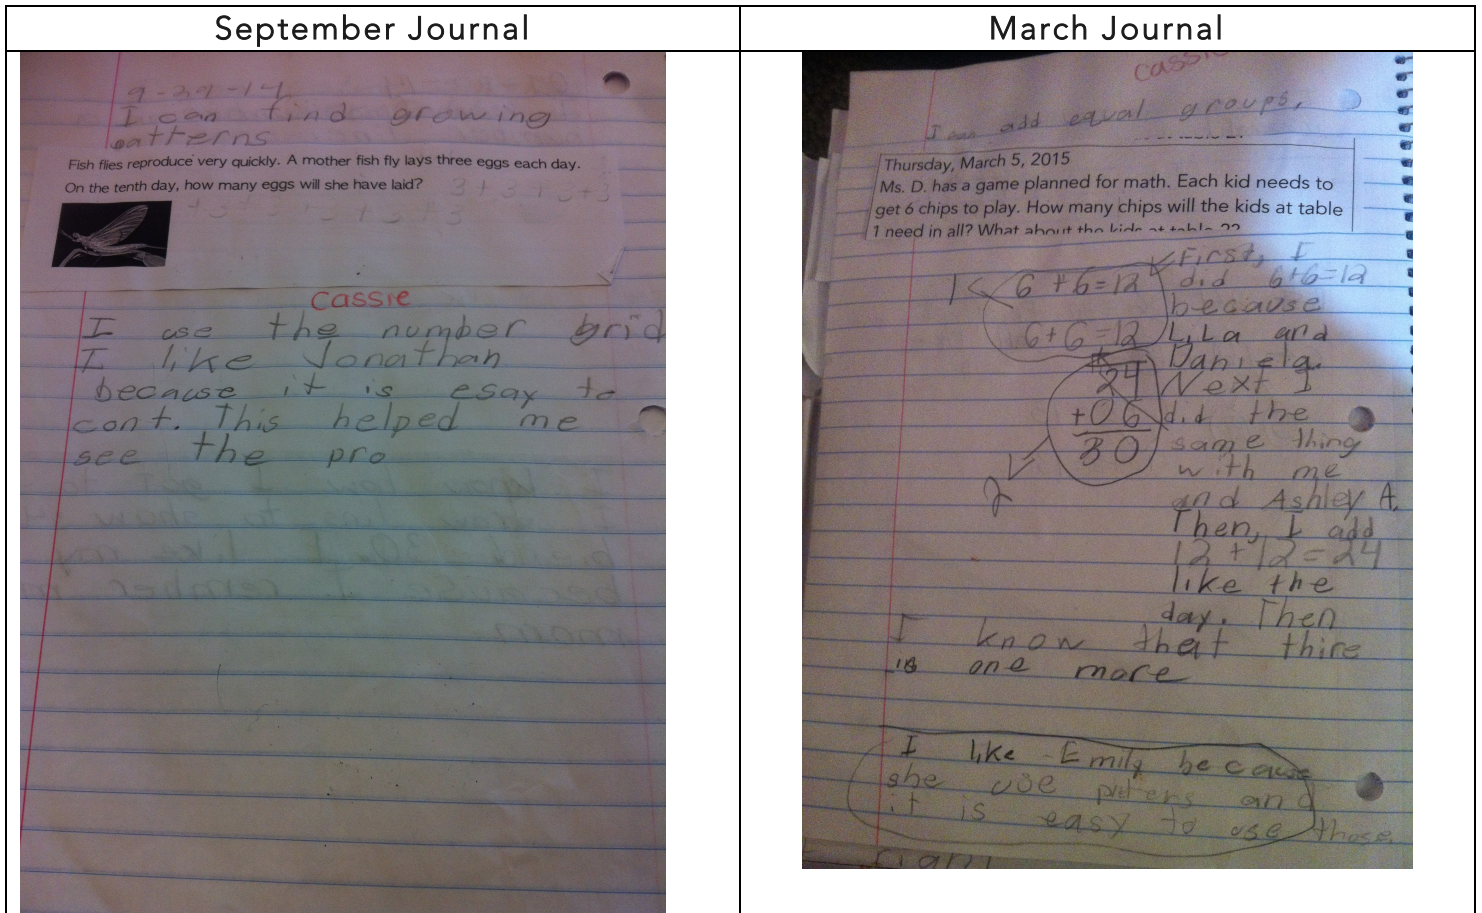 September Journal
9-29-14
I can find growing
patterns
Fish flies reproduce very quickly. A mother fish fly lays three eggs each day.
On the tenth day, how many eggs will she have laid?
3+3+3+3
+3+3+3+3+3
Cassie
I use the number grid
I like Jonathan
because it is esay to
cont. This helped me
see the pro
March Journal
Cassie
I can add equal groups.
Thursday, March 5, 2015
Ms. D. has a game planned for math. Each kid needs to
get 6 chips to play. How many chips will the kids at table
1 need in all? What about the kids at table 2?
1
6+6=12
6+6=12
24
+06
30
2
First, I
did 6+6=12
because
LiLa and
Daniela.
Next I
did the
same thing
with me
and Ashley A.
Then, I add
12+12=24
like the
day. Then
I know that thire
is one more
I like Emily because
she use and
it is easy to use those.